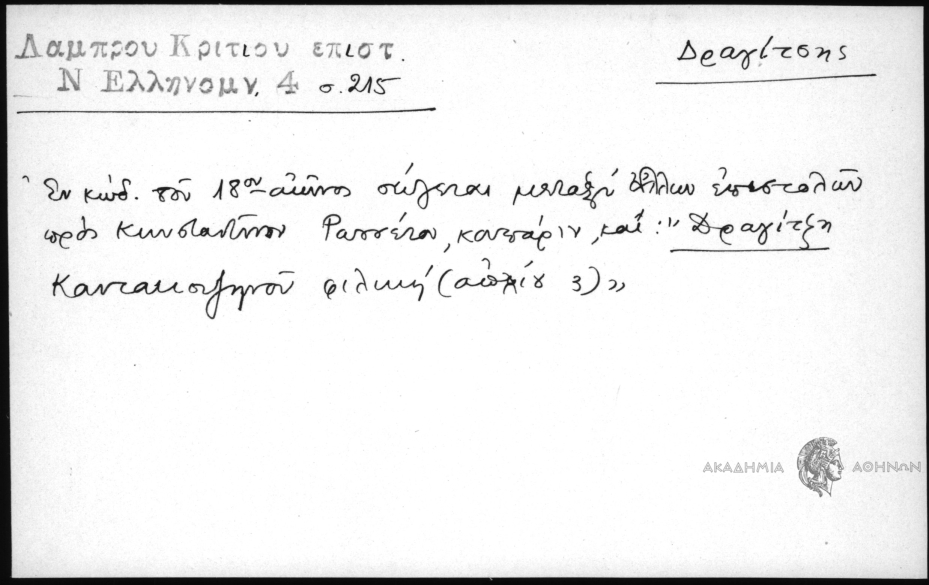 Λαμπρου Κριτιου επιστ.
Δραγίτσης
Ν Ελληνομν. 4 σ. 215
Ἐν κώδ. τοῦ 18ου αἰῶνος σώζεται μεταξὺ ἄλλων ἐπιστολῶν
πρὸς Κωνσταντῖνον καὶ: "Δραγίτζη
Καντακουζηνοῦ φιλικὴ (ἀπριλίου 3)»
ΑΚΑΔΗΜΙΑ ΑΘΗΝΩΝ